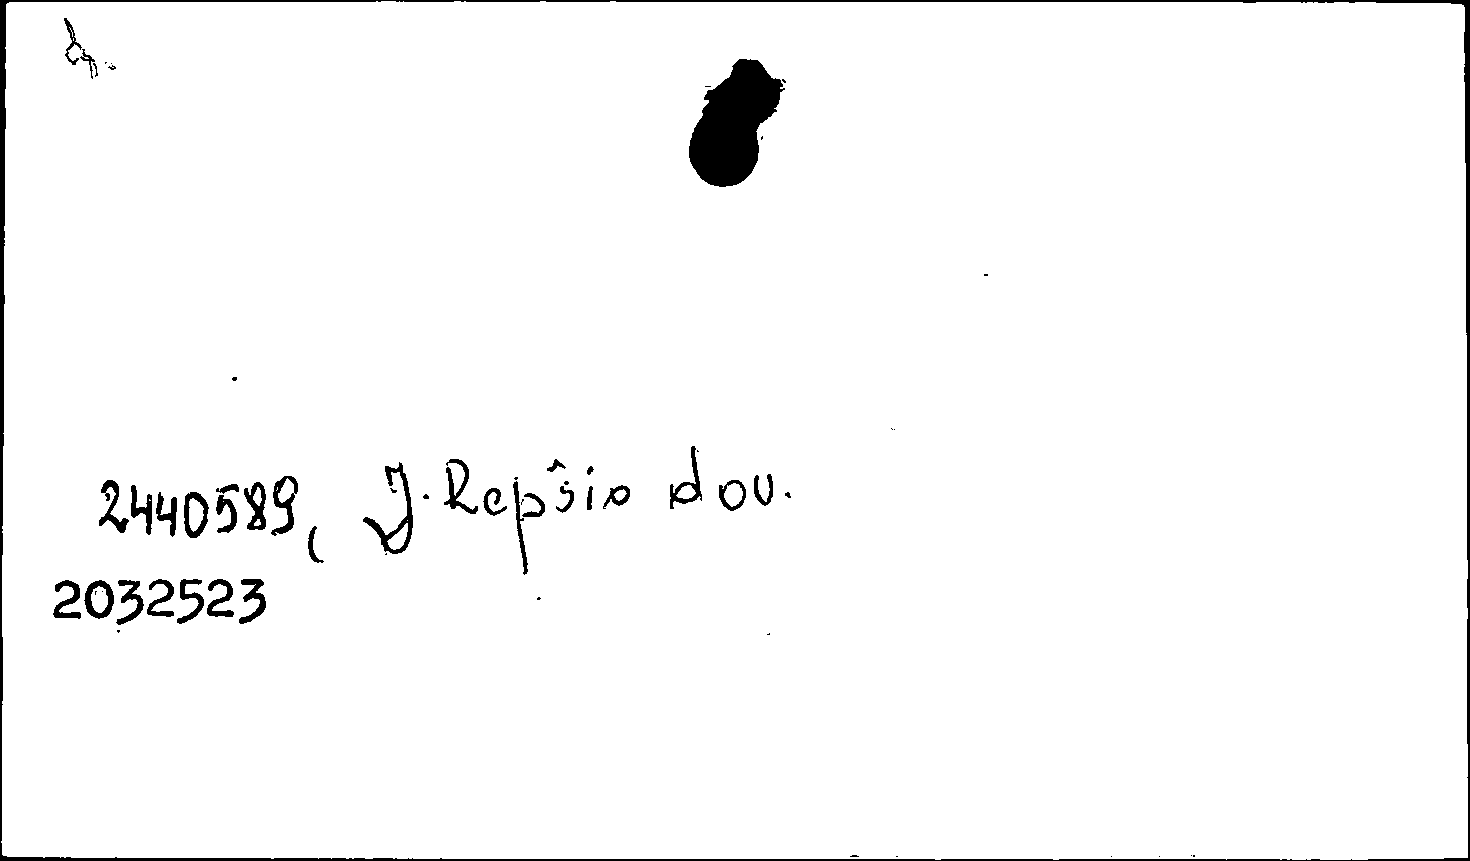 2440589, J. Repšio dov.
2032523